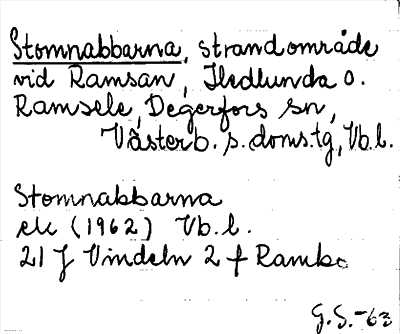 Stomnabbarna, strandområde
vid Ramsan, Hedlunda o.
Ramsele, Degerfors sn,
Västerb. s. doms.tg, Vb.l.
Stomnabbarna
ek (1962) Vb.l.
21 J Vindeln 2 f Rambo
G.S.-63